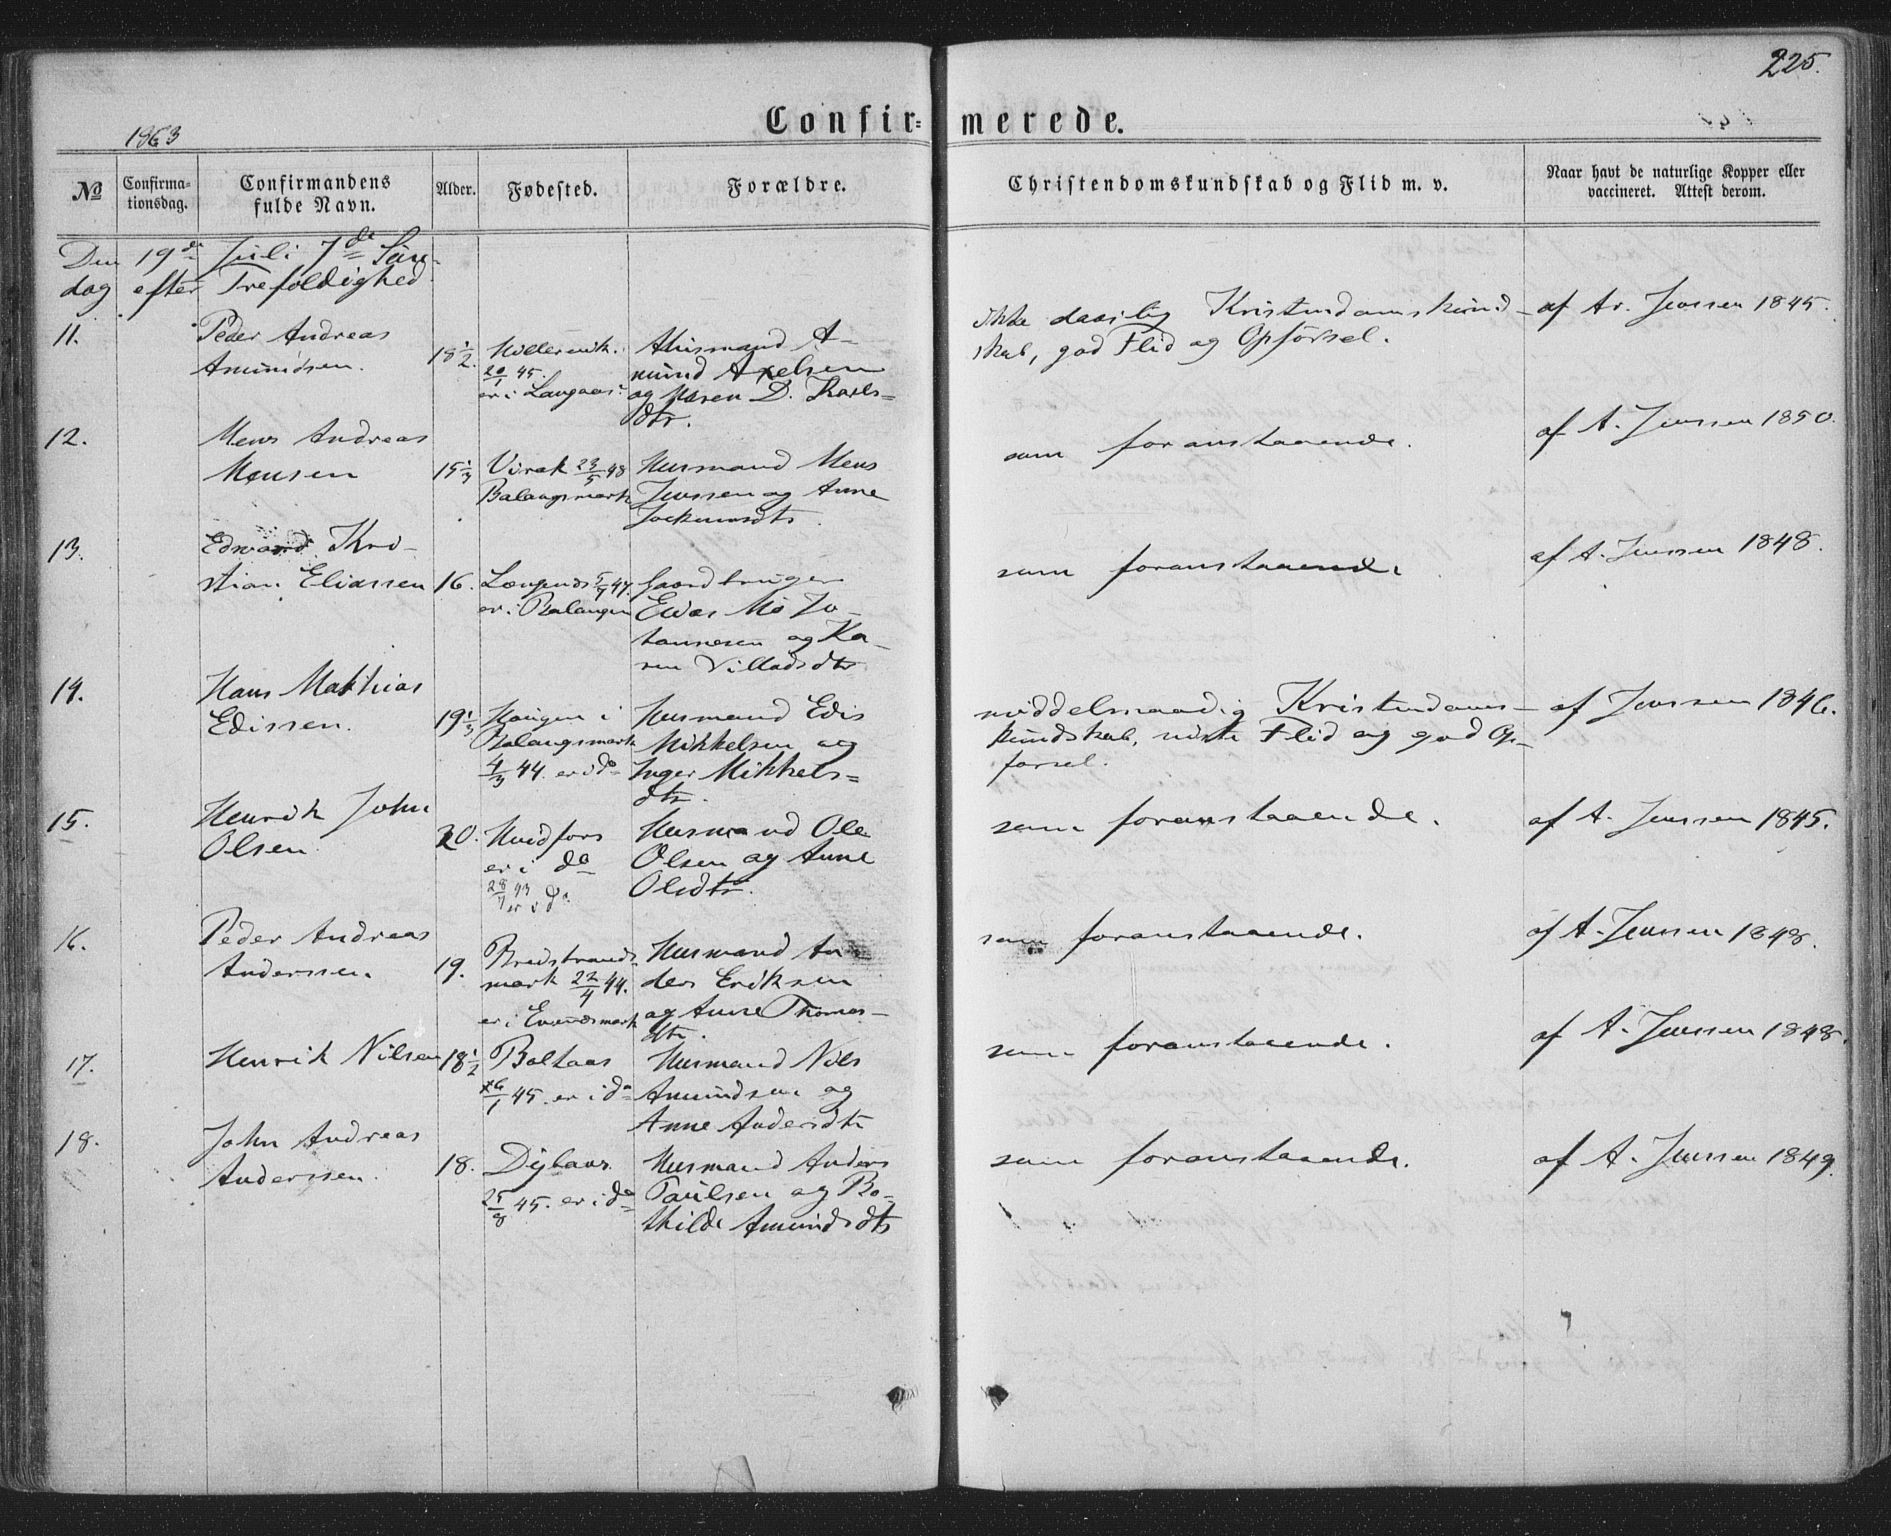 225.
1863
Confirmerede.
No
Confirmationsdag.
Confirmandens fulde Navn.
Alder.
Fødested.
Forældre.
Christendomskundskab og Flid m. v.
Naar havt de naturlige Kopper eller vaccineret. Attest derom.
Den 19de Juli 7de Søn-
dag efter Trefoldighed
11.
Peder Andreas
Amundsen.
18 1/2.
20/1 45.
er i Langaas
Husmand A-
mund Axelsen
og Maren D. Karls=
dtr.
ikke daarlig Kristendomskund-
skab, god Flid og Opførsel.
af Ar. Jenssen 1845.
12.
Mons Andreas
Monsen
15 1/3
Virak 23/5 48
Balangsmark
Husmand Mons
Jenssen og Anne
Jockumsdtr.
som foranstaaende.
af A. Jenssen 1850.
13.
Edvard Kri-
stian Eliassen
16.
5/7 47.
er i Balangen
Gaardbruger
Elias Mo Jo-
hannesen og Ka-
ren Villadsdtr
som foranstaaende
af A. Jenssen 1848.
14.
Hans Mathias
Edissen.
19 1/3
Haugen i
Balangsmark
4/3 44. er i do
Husmand Edis
Mikkelsen og
Inger Mikkels=
dtr.
middelmaadig Kristendoms-
kundskab, Flid og god Op-
førsel.
af Jenssen 1846.
15.
Henrik John
Olsen
20.
Hvidfors
er i do
28/7 43
er i do
Husmand Ole
Olsen og Anne
Olsdtr.
som foranstaaende.
af A. Jenssen 1845.
16.
Peder Andreas
Anderssen.
19.
Bredstrands
mark 22/4 44.
er i Evindsmark
Husmand An-
ders Eriksen
og Anne Thomas-
dtr.
som foranstaaende.
af A. Jenssen 1848.
17.
Henrik Nilsen
18 1/2
Boltaas
1 45. er i do
Husmand Nils
Amundsen og
Anne Andersdtr
som foranstaaende.
af A. Jenssen 1848.
18.
John Andreas
Anderssen.
18.
Dybaas.
25/8 45. er i do
Husmand Anders
Paulsen og Bo-
thilde Amundsdtr
som foranstaaende.
af A. Jenssen 1849.